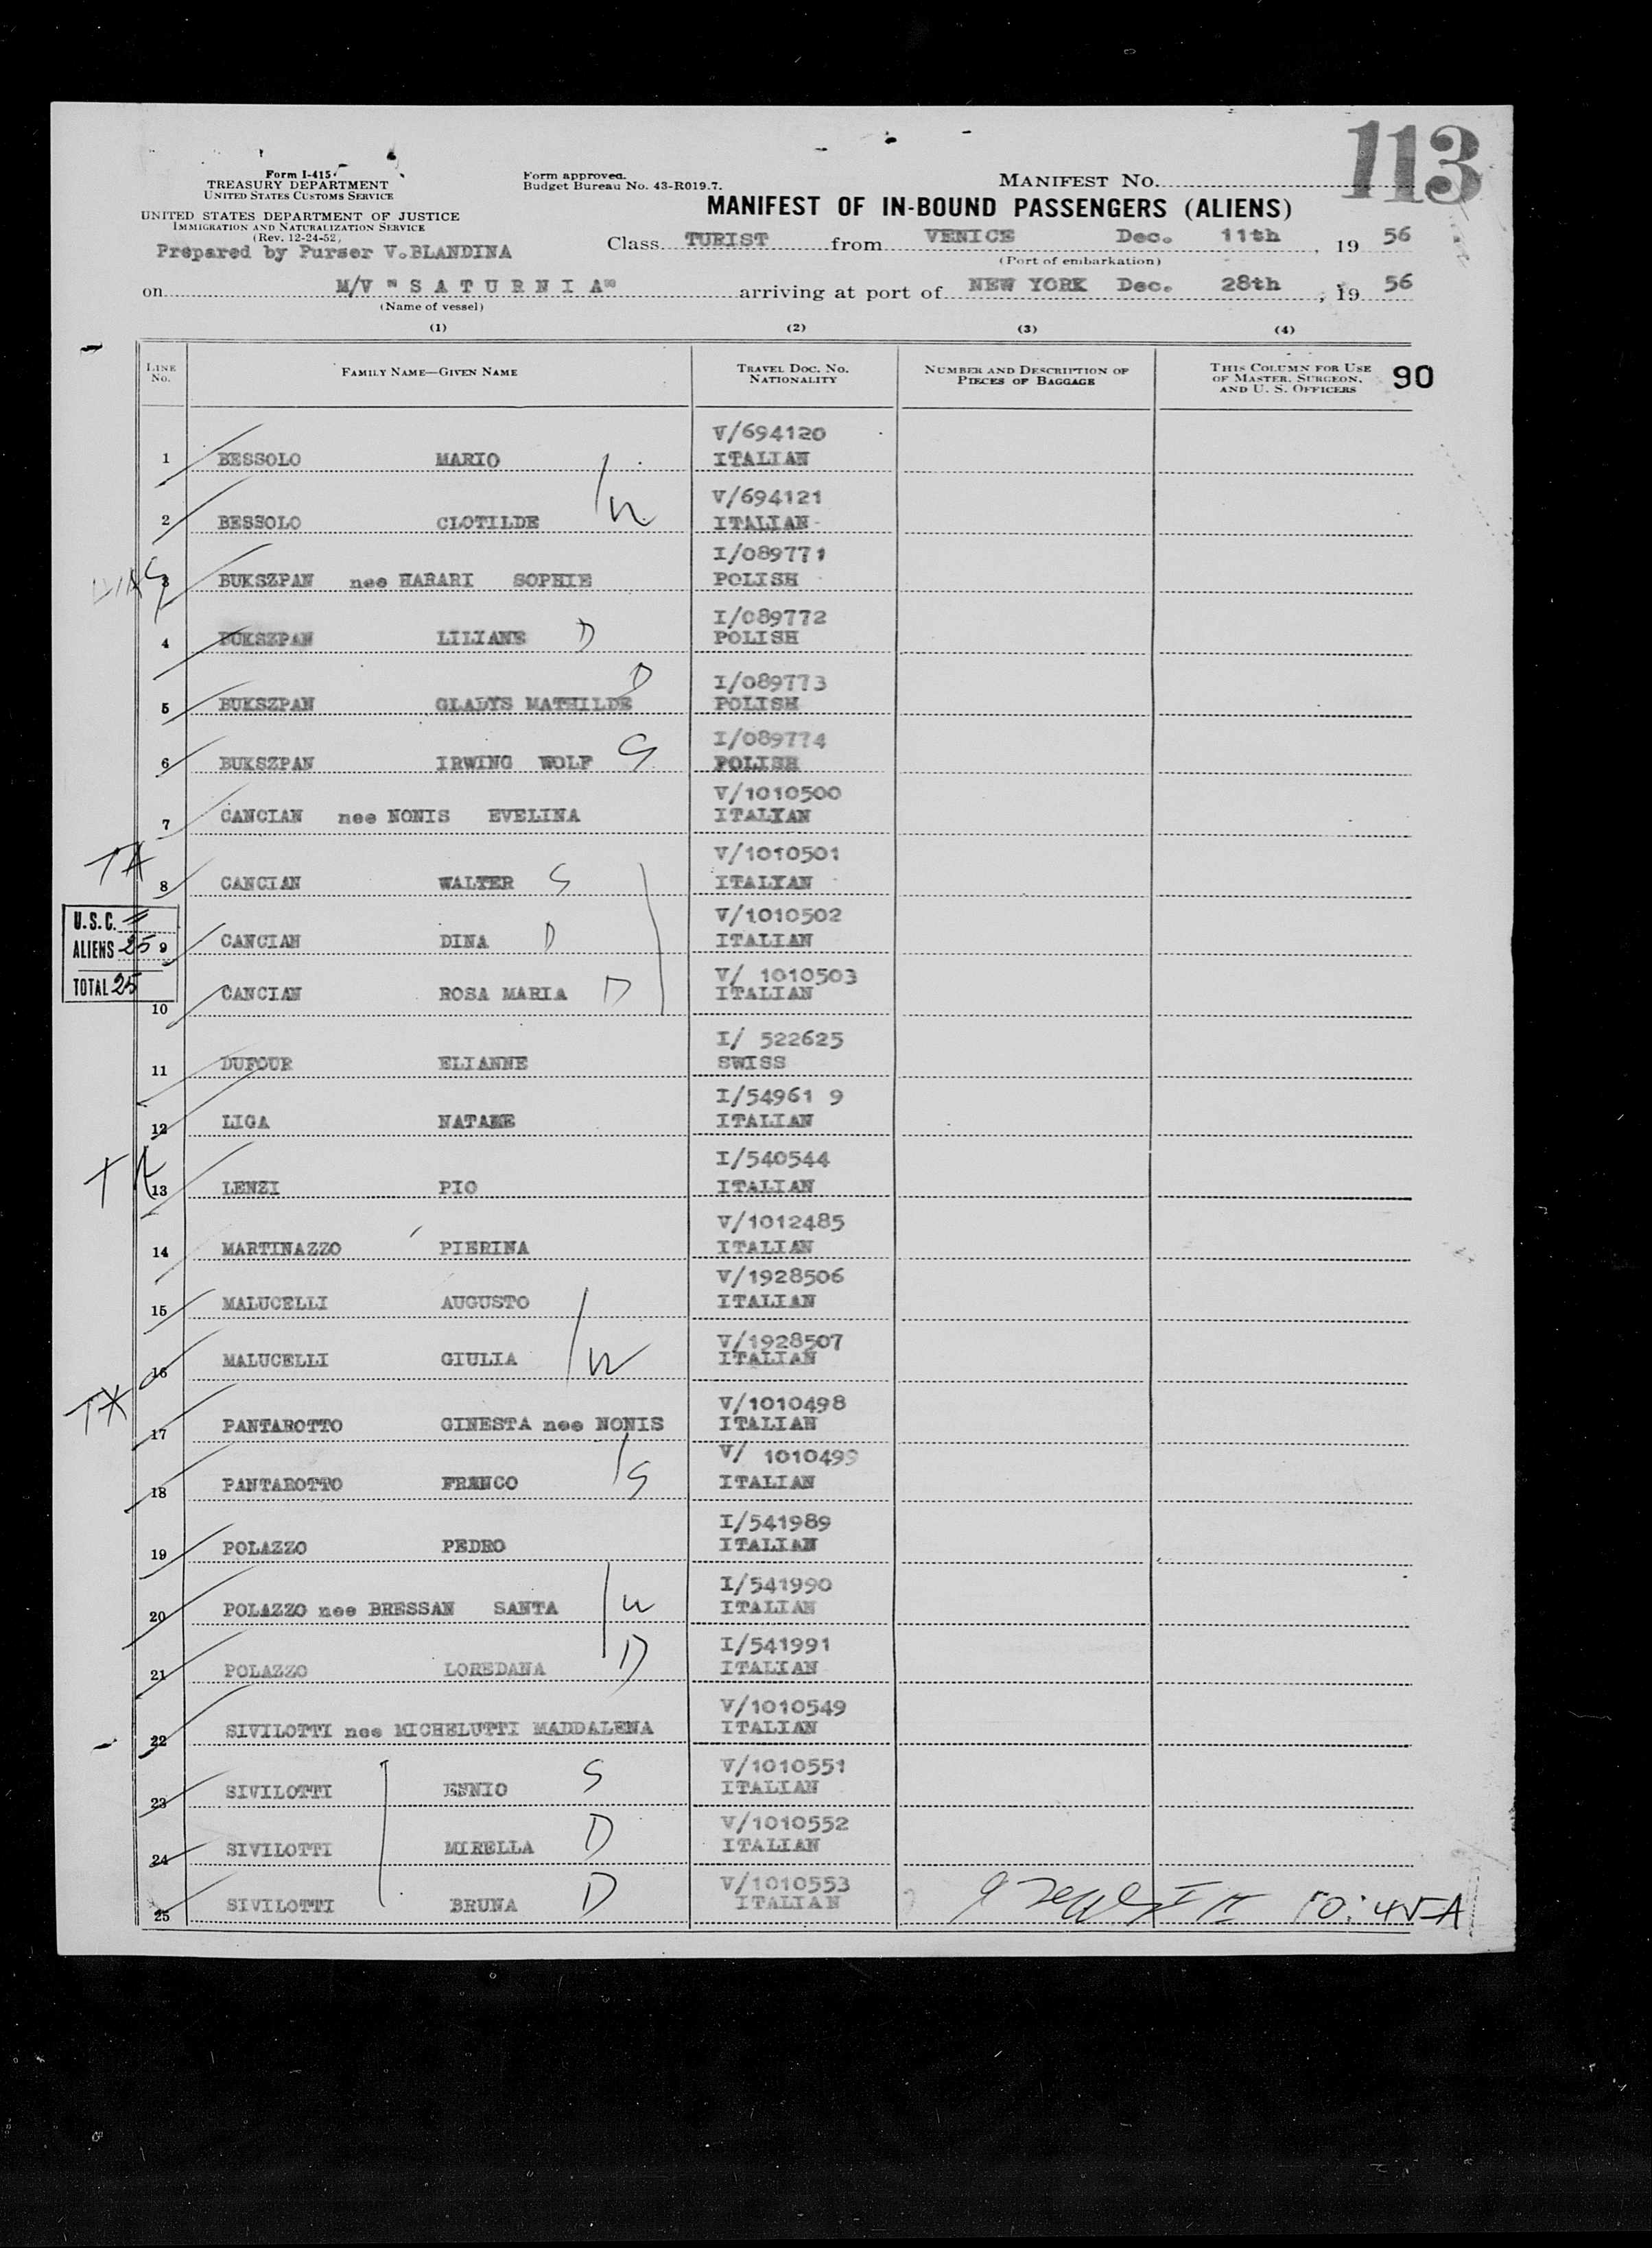 113
Form I-415
TREASURY DEPARTMENT
UNITED STATES CUSTOMS SERVICE
UNITED STATES DEPARTMENT OF JUSTICE
IMMIGRATION AND NATURALIZATION SERVICE
(Rev. 12-24-52)
Prepared by Purser V.BLANDINA
Form approved.
Budget Bureau No. 43-R019.7.
MANIFEST NO.
MANIFEST OF IN-BOUND PASSENGERS (ALIENS)
Class TURIST from VENICE Dec. 11th, 19 56
(Port of embarkation)
on M/V "S A T U R N I A" arriving at port of NEW YORK Dec. 28th, 19 56
(Name of vessel)
(1) (2) (3) (4)
LINE No. FAMILY NAME—GIVEN NAME TRAVEL DOC. NO. NATIONALITY NUMBER AND DESCRIPTION OF PIECES OF BAGGAGE THIS COLUMN FOR USE OF MASTER, SURGEON, AND U. S. OFFICERS 90
V/694120
1 BESSOLO MARIO ITALIAN
V/694121
2 BESSOLO CLOTILDE W ITALIAN
I/089771
3 BUKSZPAN nee HARARI SOPHIE POLISH
I/089772
4 BUKSZPAN LILIANE D POLISH
I/089773
5 BUKSZPAN GLADYS MATHILDE D POLISH
I/089774
6 BUKSZPAN IRWING WOLF S POLISH
V/1010500
7 CANCIAN nee NONIS EVELINA ITALIAN
V/1010501
8 CANCIAN WALTER S ITALIAN
U.S.C.
ALIENS 25
TOTAL 25
V/1010502
9 CANCIAN DINA D ITALIAN
V/ 1010503
10 CANCIAN ROSA MARIA D ITALIAN
I/ 522625
11 DUFOUR ELIANNE SWISS
I/54961 9
12 LIGA ITALIAN
I/540544
13 LENZI PIO ITALIAN
V/1012485
14 MARTINAZZO PIERINA ITALIAN
V/1928506
15 MALUCELLI AUGUSTO ITALIAN
V/1928507
16 MALUCELLI GIULIA W ITALIAN
V/1010498
17 PANTAROTTO GINESTA nee NONIS ITALIAN
V/ 1010499
18 PANTAROTTO FRANCO S ITALIAN
I/541989
19 POLAZZO PEDRO ITALIAN
I/541990
20 POLAZZO nee BRESSAN SANTA W ITALIAN
I/541991
21 POLAZZO LOREDANA D ITALIAN
V/1010549
22 SIVILOTTI nee MICHELUTTI MADDALENA ITALIAN
V/1010551
23 SIVILOTTI ENNIO S ITALIAN
V/1010552
24 SIVILOTTI MIRELLA D ITALIAN
V/1010553
25 SIVILOTTI BRUNA D ITALIAN
10:45-A